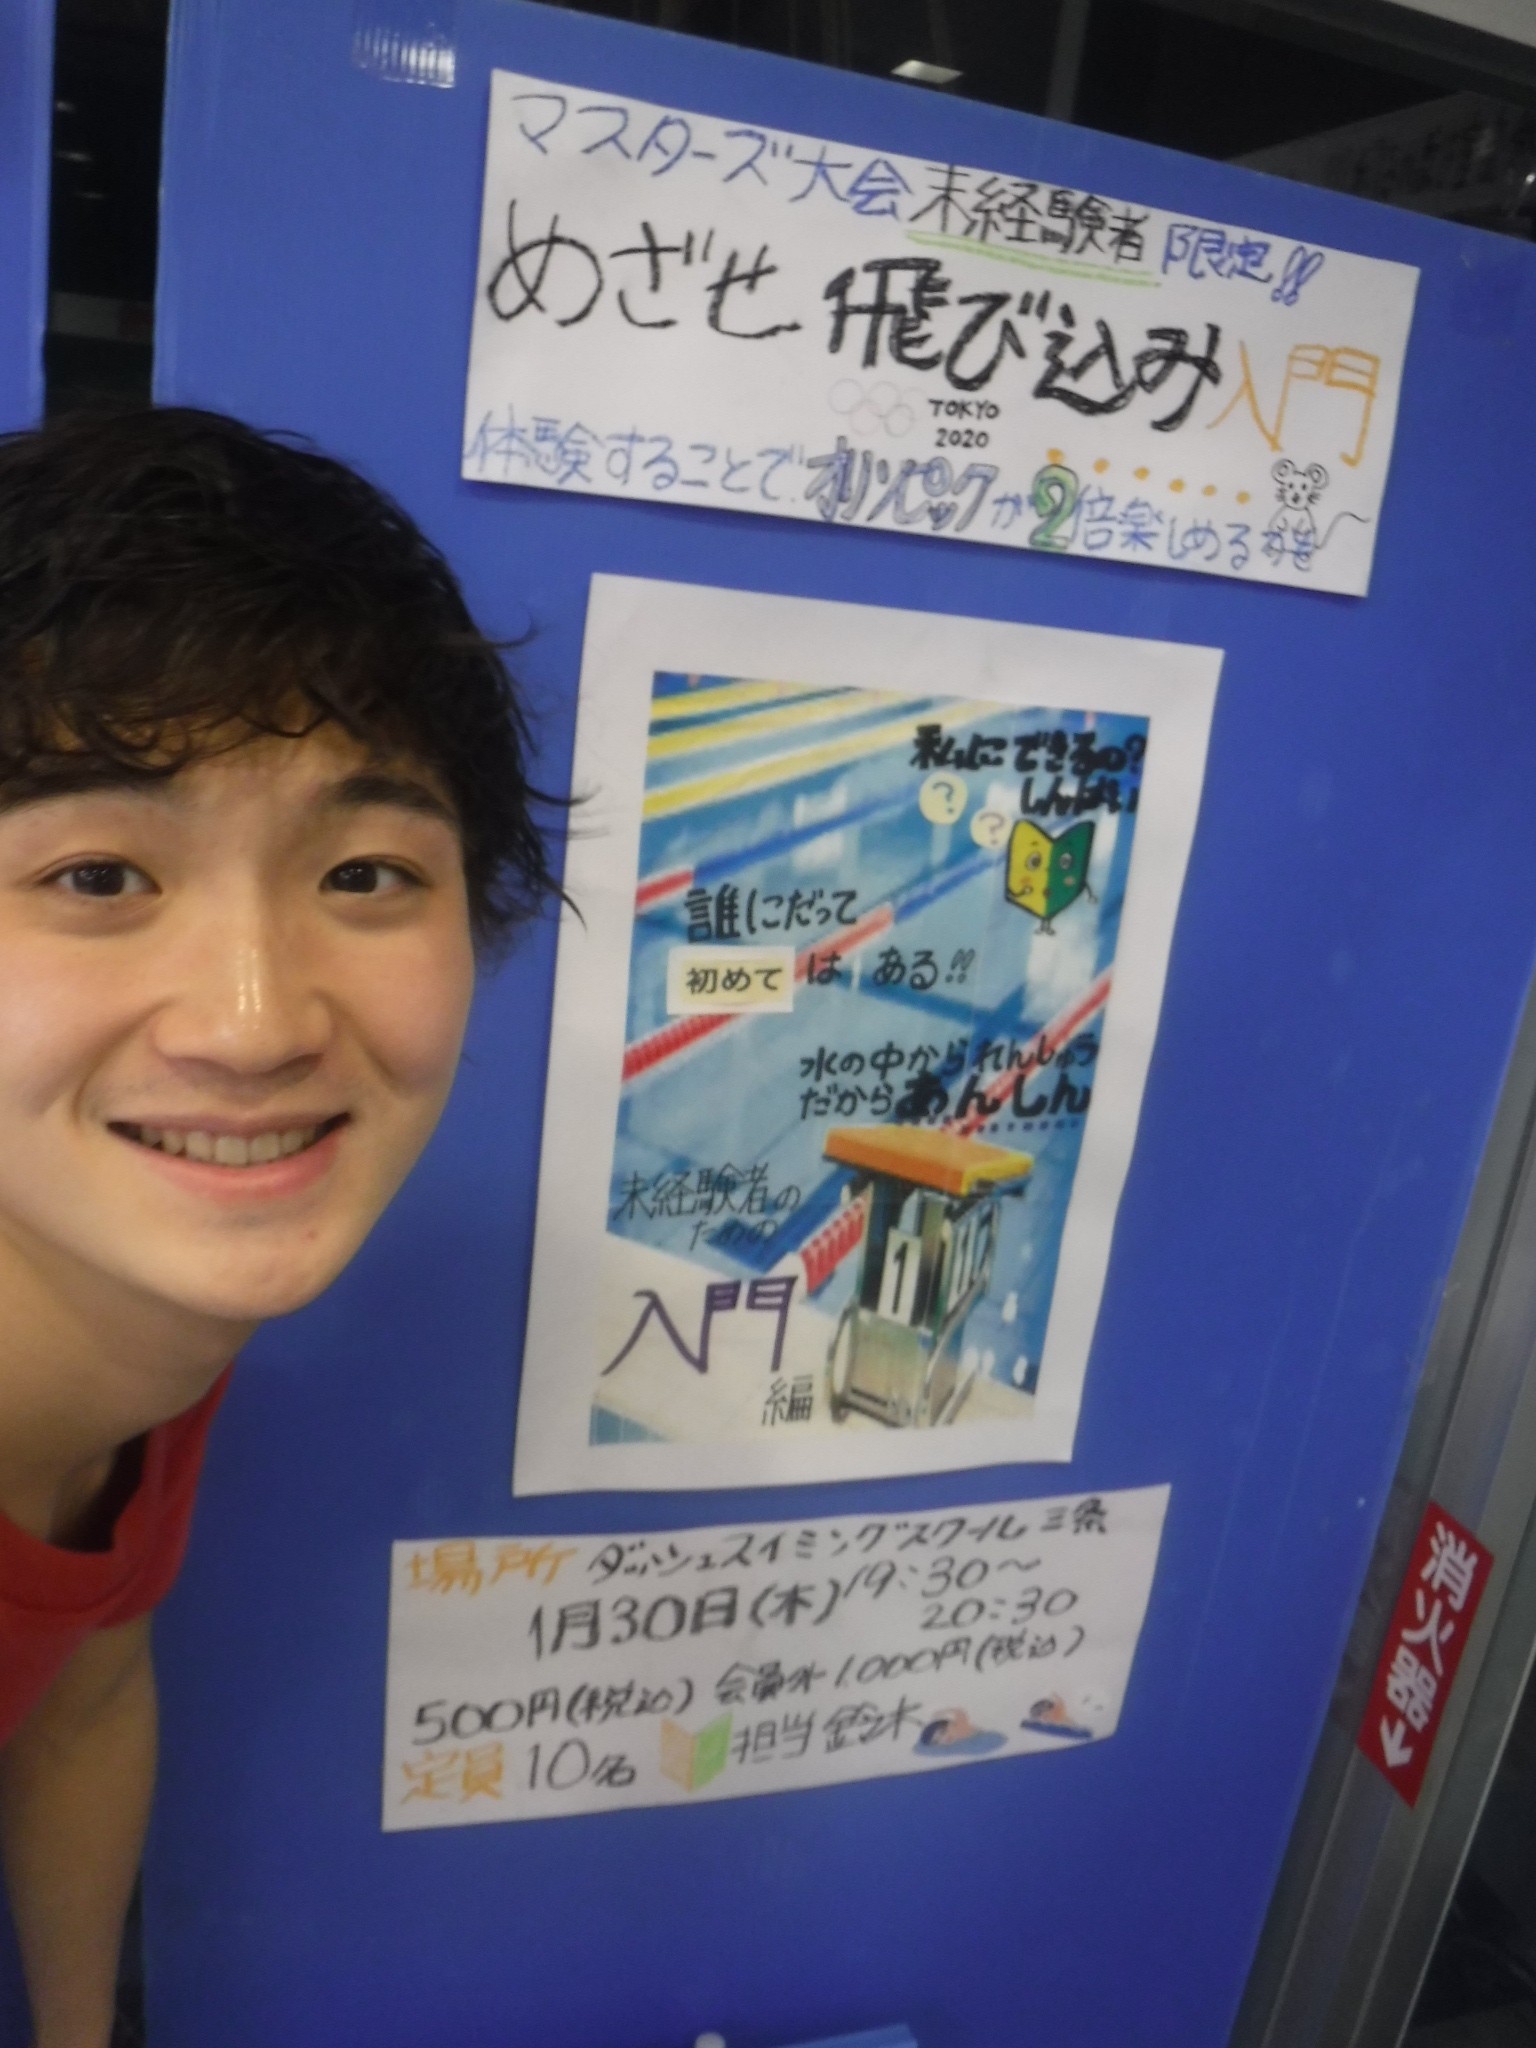 マスターズ大会未経験者限定!!
めざせ飛び込み入門
TOKYO
2020
体験することでオリンピックが2倍楽しめる
私にできるの?
しんぱい
?
?
誰にだって
初めて は ある!!
水の中かられんしゅう
だから あんしん
未経験者の
ための
入門
編
1
場所 ダッシュスイミングスクール三条
1月30日(木) 19:30〜
20:30
500円(税込) 会員外1.000円(税込)
定員 10名 担当 鈴木
消火器